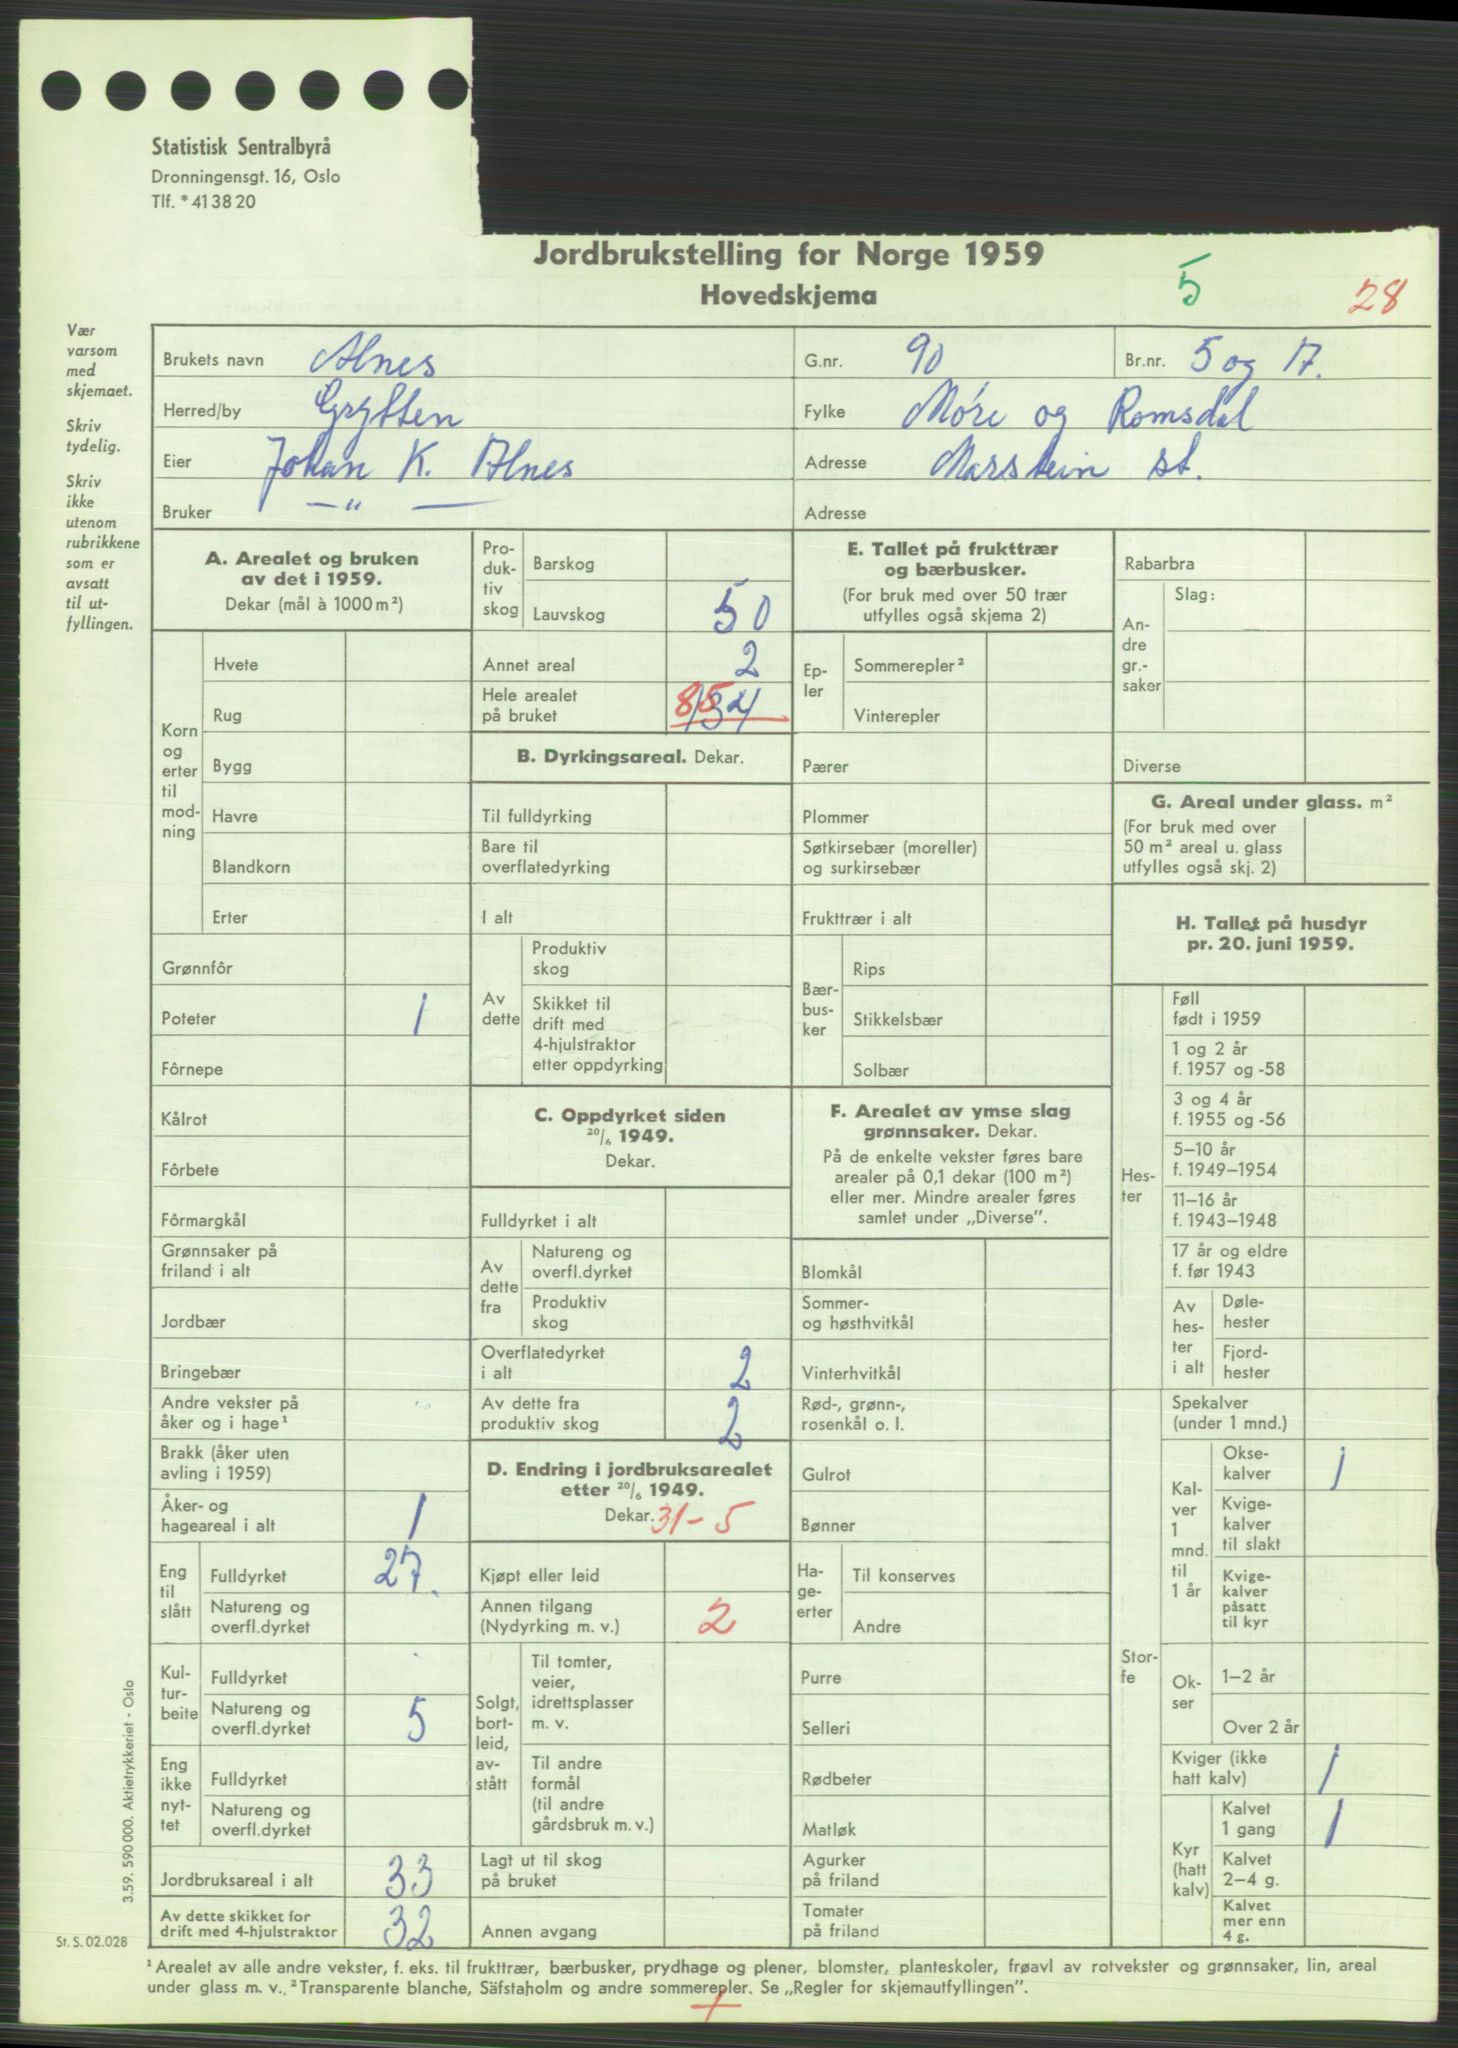 Statistisk Sentralbyrå
Dronningensgt. 16, Oslo
Tlf. * 41 38 20
Jordbrukstelling for Norge 1959
Hovedskjema
5
28
Vær
varsom
med
skjemaet.
Skriv
tydelig.
Skriv
ikke
utenom
rubrikkene
som er
avsatt
til ut-
fyllingen.
Brukets navn Alnes G.nr. 90 Br.nr. 5 og 17.
Herred/by Grytten Fylke Møre og Romsdal
Eier Johan K. Alnes Adresse Marstein st.
Bruker — „ — Adresse
A. Arealet og bruken
av det i 1959.
Dekar (mål à 1000 m²)
Korn
og
erter
til
mod-
ning
Hvete
Rug
Bygg
Havre
Blandkorn
Erter
Grønnfôr
Poteter 1
Fôrnepe
Kålrot
Fôrbete
Fôrmargkål
Grønnsaker på
friland i alt
Jordbær
Bringebær
Andre vekster på
åker og i hage¹
Brakk (åker uten
avling i 1959)
Åker- og
hageareal i alt 1
Eng
til
slått
Fulldyrket 27.
Natureng og
overfl.dyrket
Kul-
tur-
beite
Fulldyrket
Natureng og
overfl.dyrket 5
Eng
ikke
nyt-
tet
Fulldyrket
Natureng og
overfl.dyrket
Jordbruksareal i alt 33
Av dette skikket for
drift med 4-hjulstraktor 32
Pro-
duk-
tiv
skog
Barskog
Lauvskog 50
Annet areal 2
Hele arealet
på bruket 85 134
B. Dyrkingsareal. Dekar.
Til fulldyrking
Bare til
overflatedyrking
I alt
Av
dette
Produktiv
skog
Skikket til
drift med
4-hjulstraktor
etter oppdyrking
C. Oppdyrket siden
20/6 1949.
Dekar.
Fulldyrket i alt
Av
dette
fra
Natureng og
overfl.dyrket
Produktiv
skog
Overflatedyrket
i alt 2
Av dette fra
produktiv skog 2
D. Endring i jordbruksarealet
etter 20/6 1949.
Dekar. 31 - 5
Kjøpt eller leid
Annen tilgang
(Nydyrking m. v.) 2
Solgt,
bort-
leid,
av-
stått
Til tomter,
veier,
idrettsplasser
m. v.
Til andre
formål
(til andre
gårdsbruk m. v.)
Lagt ut til skog
på bruket
Annen avgang
E. Tallet på frukttrær
og bærbusker.
(For bruk med over 50 trær
utfylles også skjema 2)
Ep-
ler
Sommerepler²
Vinterepler
Pærer
Plommer
Søtkirsebær (moreller)
og surkirsebær
Frukttrær i alt
Bær-
bus-
ker
Rips
Stikkelsbær
Solbær
F. Arealet av ymse slag
grønnsaker. Dekar.
På de enkelte vekster føres bare
arealer på 0,1 dekar (100 m²)
eller mer. Mindre arealer føres
samlet under „Diverse”.
Blomkål
Sommer-
og høsthvitkål
Vinterhvitkål
Rød-, grønn-,
rosenkål o. l.
Gulrot
Bønner
Ha-
ge-
erter
Til konserves
Andre
Purre
Selleri
Rødbeter
Matløk
Agurker
på friland
Tomater
på friland
Rabarbra
An-
dre
gr.-
saker
Slag:
Diverse
G. Areal under glass. m²
(For bruk med over
50 m² areal u. glass
utfylles også skj. 2)
H. Tallet på husdyr
pr. 20. juni 1959.
Hes-
ter
Føll
født i 1959
1 og 2 år
f. 1957 og -58
3 og 4 år
f. 1955 og -56
5–10 år
f. 1949–1954
11–16 år
f. 1943–1948
17 år og eldre
f. før 1943
Av
hes-
ter
i alt
Døle-
hester
Fjord-
hester
Stor-
fe
Spekalver
(under 1 mnd.)
Kal-
ver
1
mnd.
til
1 år
Okse-
kalver 1
Kvige-
kalver
til slakt
Kvige-
kalver
påsatt
til kyr
Ok-
ser
1–2 år
Over 2 år
Kviger (ikke
hatt kalv) 1
Kyr
(hatt
kalv)
Kalvet
1 gang 1
Kalvet
2–4 g.
Kalvet
mer enn
4 g.
3.59. 590 000. Aktietrykkeriet - Oslo
St. S. 02.028
¹ Arealet av alle andre vekster, f. eks. til frukttrær, bærbusker, prydhage og plener, blomster, planteskoler, frøavl av rotvekster og grønnsaker, lin, areal
under glass m. v. ² Transparente blanche, Säfstaholm og andre sommerepler. Se „Regler for skjemautfyllingen”.
+